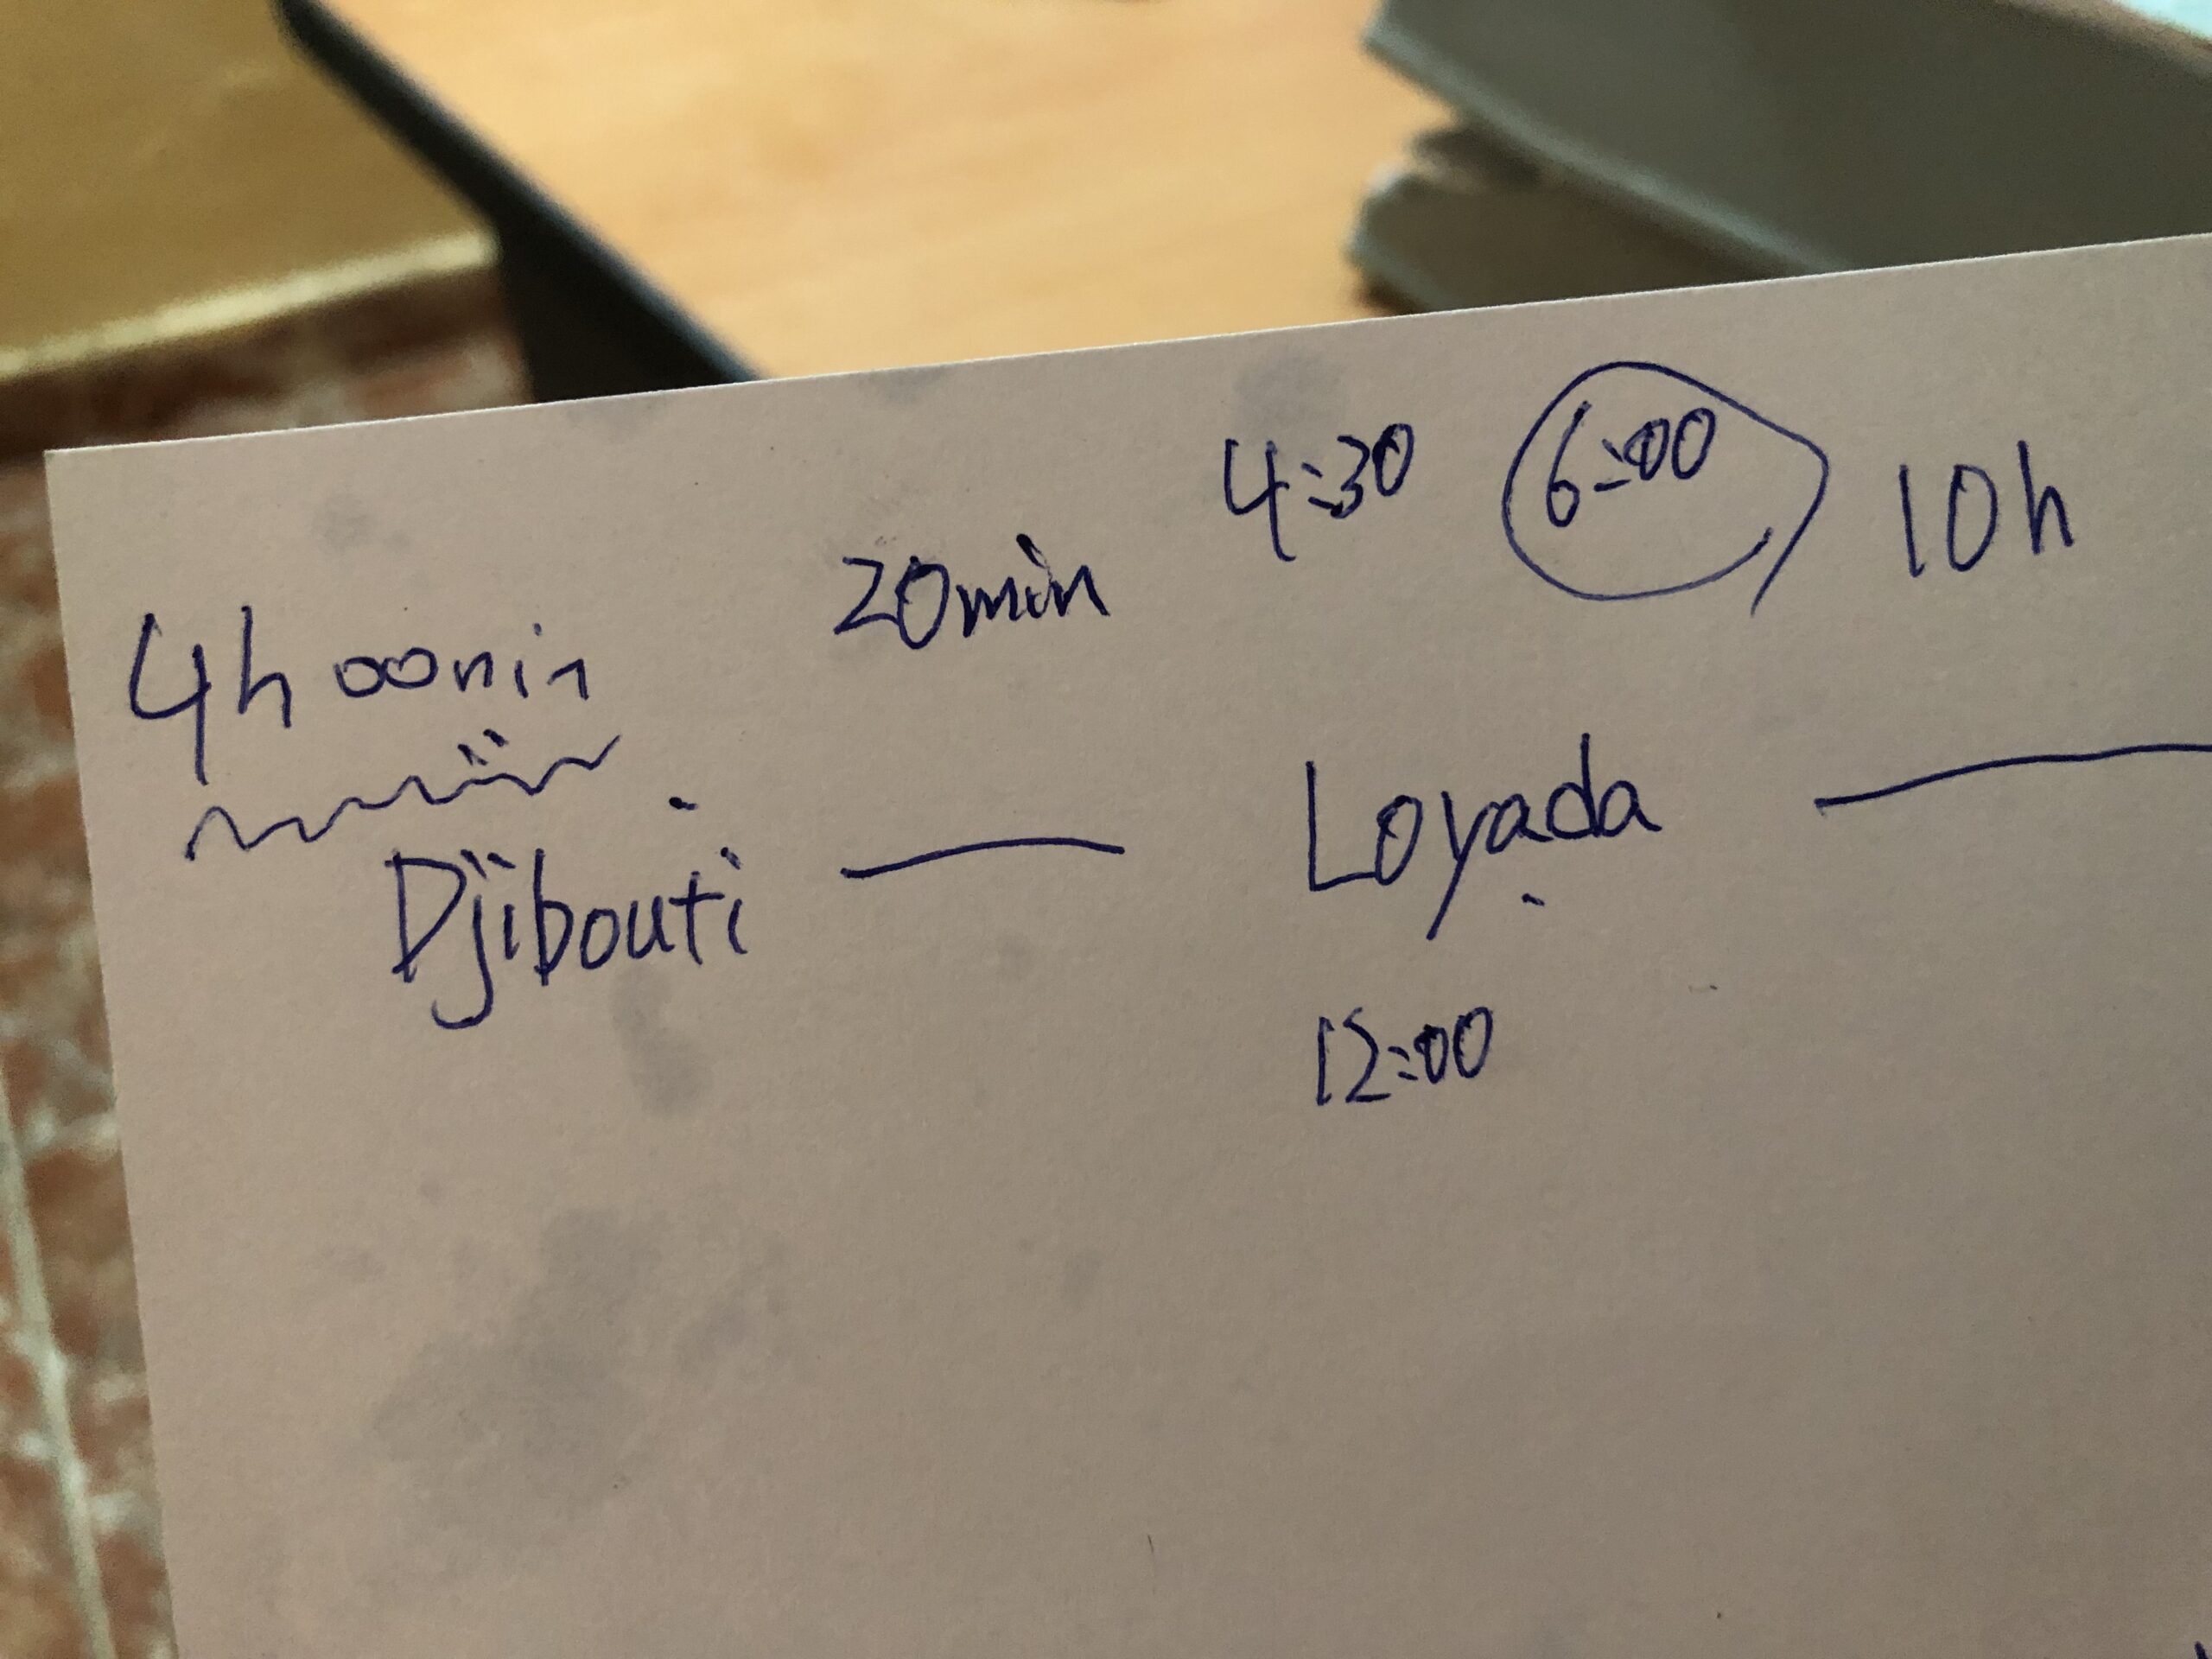 4h 00min 20min 4:30 6:00 10h
Djibouti — Loyada —
12:00